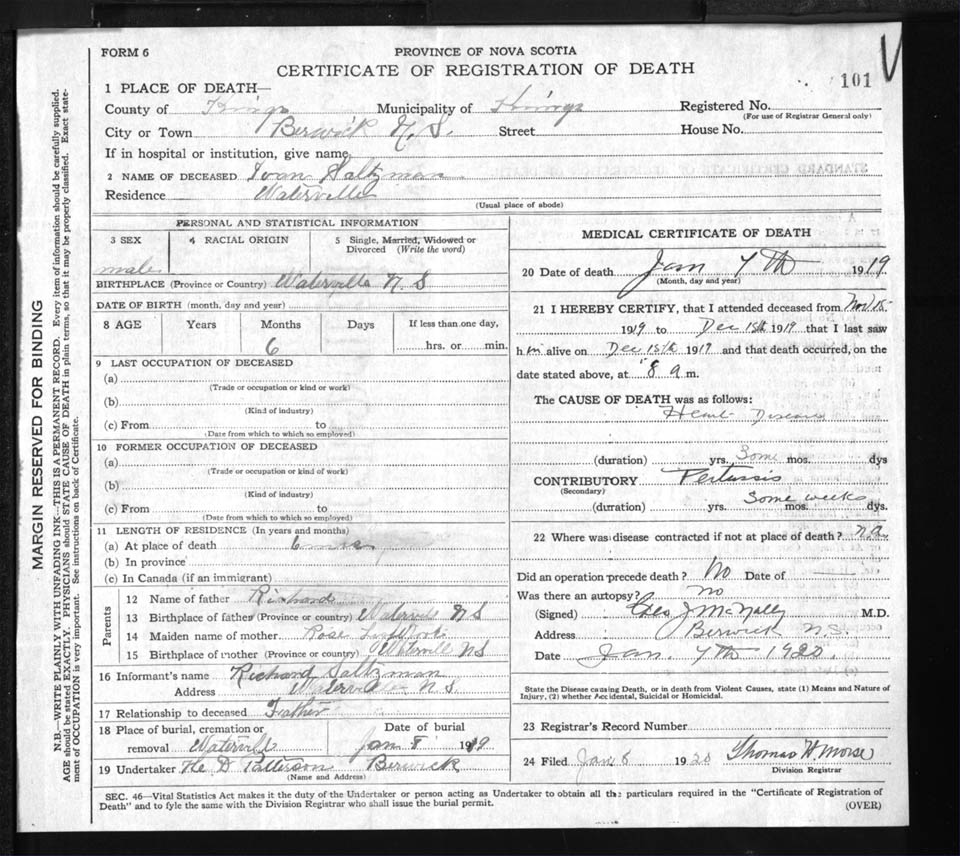 FORM 6
PROVINCE OF NOVA SCOTIA
CERTIFICATE OF REGISTRATION OF DEATH
101
1 PLACE OF DEATH—
County of Kings Municipality of Kings Registered No.
(For use of Registrar General only)
City or Town Berwick N.S. Street House No.
If in hospital or institution, give name
2 NAME OF DECEASED Ivan Saltzman
Residence Waterville
(Usual place of abode)
PERSONAL AND STATISTICAL INFORMATION
3 SEX 4 RACIAL ORIGIN 5 Single, Married, Widowed or
Divorced (Write the word)
male
BIRTHPLACE (Province or Country) Waterville N.S
DATE OF BIRTH (month, day and year)
8 AGE Years Months Days If less than one day,
6 hrs. or min.
9 LAST OCCUPATION OF DECEASED
(a)
(Trade or occupation or kind or work)
(b)
(Kind of industry)
(c) From to
(Date from which to which so employed)
10 FORMER OCCUPATION OF DECEASED
(a)
(Trade or occupation or kind of work)
(b)
(Kind of industry)
(c) From to
(Date from which to which so employed)
11 LENGTH OF RESIDENCE (In years and months)
(a) At place of death 6
(b) In province
(c) In Canada (if an immigrant)
Parents
12 Name of father Richard
13 Birthplace of father (Province or country) Waterville N S
14 Maiden name of mother Rose
15 Birthplace of mother (Province or country) Waterville NS
16 Informant's name Richard Saltzman
Address Waterville N S
17 Relationship to deceased Father
18 Place of burial, cremation or Date of burial
removal Waterville Jan 8 1919
19 Undertaker D Patterson Berwick
(Name and Address)
MEDICAL CERTIFICATE OF DEATH
20 Date of death Jan 7th 1919
(Month, day and year)
21 I HEREBY CERTIFY, that I attended deceased from Nov 15
1919 to Dec 15th 1919 that I last saw
him alive on Dec 15th 1919 and that death occurred, on the
date stated above, at 8 a m.
The CAUSE OF DEATH was as follows:
Heart Disease
(duration) yrs. Some mos. dys
CONTRIBUTORY Pertussis
(Secondary)
Some weeks
(duration) yrs. mos. dys.
22 Where was disease contracted if not at place of death?
Did an operation precede death? No Date of
Was there an autopsy? no
(Signed) Geo J McNally M.D.
Address Berwick N.S.
Date Jan. 7th 1920.
State the Disease causing Death, or in death from Violent Causes, state (1) Means and Nature of
Injury, (2) whether Accidental, Suicidal or Homicidal.
23 Registrar's Record Number
24 Filed Jan 8 1920 Thomas H. Morse
Division Registrar
SEC. 46—Vital Statistics Act makes it the duty of the Undertaker or person acting as Undertaker to obtain all the particulars required in the "Certificate of Registration of
Death" and to fyle the same with the Division Registrar who shall issue the burial permit. (OVER)
MARGIN RESERVED FOR BINDING
N.B.—WRITE PLAINLY WITH UNFADING INK—THIS IS A PERMANENT RECORD. Every item of information should be carefully supplied.
AGE should be stated EXACTLY. PHYSICIANS should STATE CAUSE OF DEATH in plain terms, so that it may be properly classified. Exact state-
ment of OCCUPATION is very important. See instructions on back of Certificate.